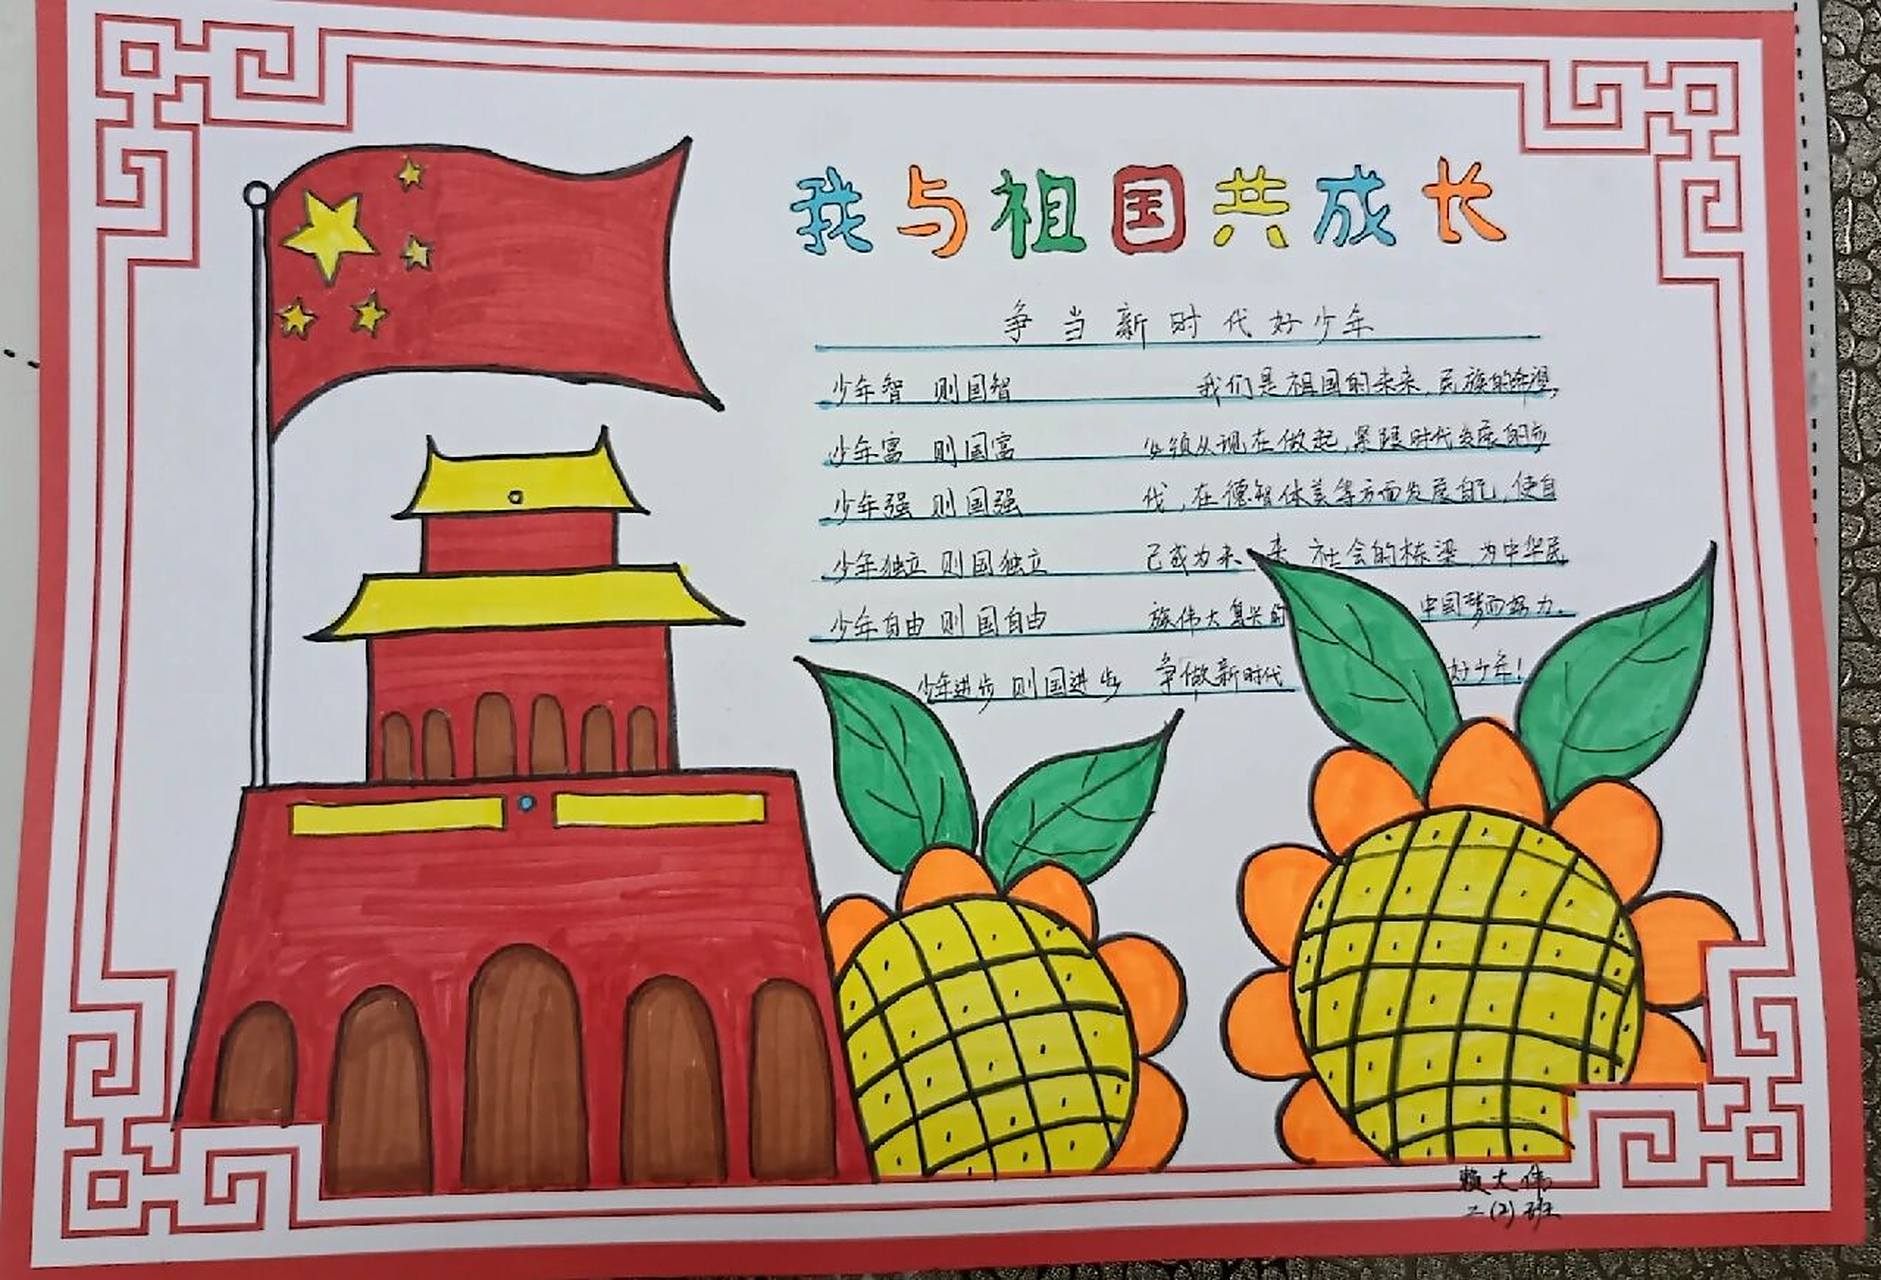 我与祖国共成长
争当新时代好少年
少年智 则国智 我们是祖国的未来,民族的希望,
少年富 则国富 必须从现在做起,紧跟时代发展的步
少年强 则国强 代,在德智体美等方面发展自己,使自
少年独立 则国独立 己成为未来社会的栋梁,为中华民
少年自由 则国自由 族伟大复兴的中国梦而努力。
少年进步 则国进步 争做新时代好少年!
赖大伟
二(2)班